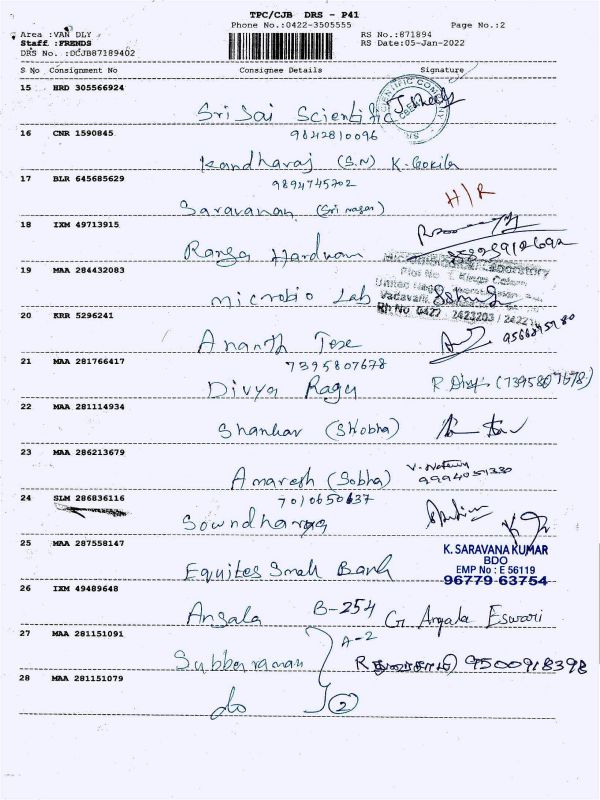 TPC/CJB DRS - P41
Phone No.:0422-3505555 Page No.:2
Area :VAN DLY RS No.:871894
Staff :FRENDS RS Date:05-Jan-2022
DRS No. :DCJB87189402
S No Consignment No Consignee Details Signature
15 HRD 305566924
Sri Sai Scientific
16 CNR 1590845 9842810096
Kandharaj (S.N) K. Gokila
17 BLR 645685629 9894745702
Saravanan (Sri nagar) H/R
18 IXM 49713915
Ranga Hardware
19 MAA 284432083
Microbio Lab
Ph No 0422
20 KRR 5296241
Ananth Tose
21 MAA 281766417 7395807678
Divya Ragu (7395807678)
22 MAA 281114934
Shankar (Shobha)
23 MAA 286213679
Amaresh (Sobha) 9994051330
24 SLM 286836116 7010650637
Soundharya
25 MAA 287558147
K. SARAVANA KUMAR
BDO
EMP No : E 56119
96779 63754
Equites Small Bank
26 IXM 49489648
Angala B-254 G. Angala Eswari
27 MAA 281151091 A-2
Subbaraman R 9500918398
28 MAA 281151079
do 2